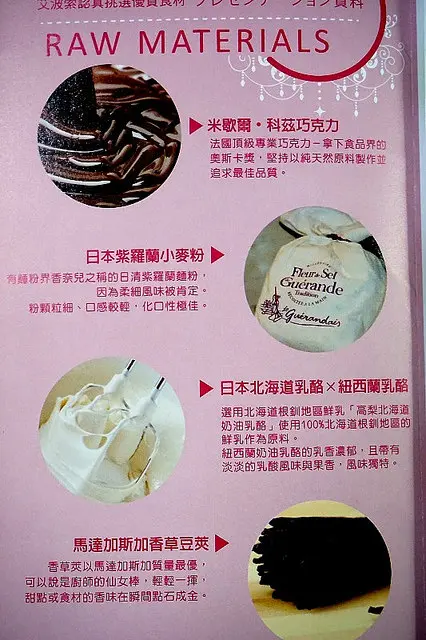 艾波索認真挑選優質食材 プレゼンテーション資料
RAW MATERIALS
米歇爾・科茲巧克力
法國頂級專業巧克力－拿下食品界的
奧斯卡獎，堅持以純天然原料製作並
追求最佳品質。
日本紫羅蘭小麥粉
有麵粉界香奈兒之稱的日清紫羅蘭麵粉，
因為柔細風味被肯定。
粉顆粒細、口感較輕，化口性極佳。
Fleur de Sel
Guérande
Tradition
RÉCOLTÉ À LA MAIN
Le Guérandais
日本北海道乳酪×紐西蘭乳酪
選用北海道根釧地區鮮乳「高梨北海道
奶油乳酪」使用100%北海道根釧地區的
鮮乳作為原料。
紐西蘭奶油乳酪的乳香濃郁，且帶有
淡淡的乳酸風味與果香，風味獨特。
馬達加斯加香草豆莢
香草莢以馬達加斯加質量最優，
可以說是廚師的仙女棒，輕輕一揮，
甜點或食材的香味在瞬間點石成金。